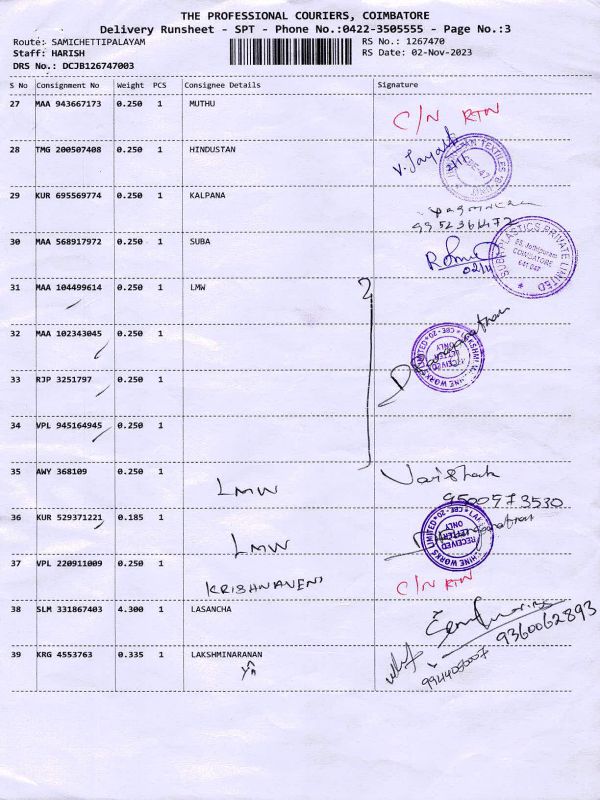 THE PROFESSIONAL COURIERS, COIMBATORE
Delivery Runsheet - SPT - Phone No.:0422-3505555 - Page No.:3
Route: SAMICHETTIPALAYAM
RS No.: 1267470
Staff: HARISH
RS Date: 02-Nov-2023
DRS No.: DCJB126747003
S No Consignment No Weight PCS Consignee Details Signature
27 MAA 943667173 0.250 1 MUTHU C/N RTN
28 TMG 200507408 0.250 1 HINDUSTAN
29 KUR 695569774 0.250 1 KALPANA
30 MAA 568917972 0.250 1 SUBA
SUBA PLASTICS PRIVATE LIMITED
COIMBATORE
641 047
02/11
31 MAA 104499614 0.250 1 LMW
32 MAA 102343045 0.250 1
33 RJP 3251797 0.250 1
34 VPL 945164945 0.250 1
35 AWY 368109 0.250 1 LMW
9500573530
36 KUR 529371221 0.185 1 LMW
RECEIVED
LETTER
ONLY
37 VPL 220911009 0.250 1 KRISHNAVENI C/N RTN
38 SLM 331867403 4.300 1 LASANCHA
9360062893
39 KRG 4553763 0.335 1 LAKSHMINARANAN